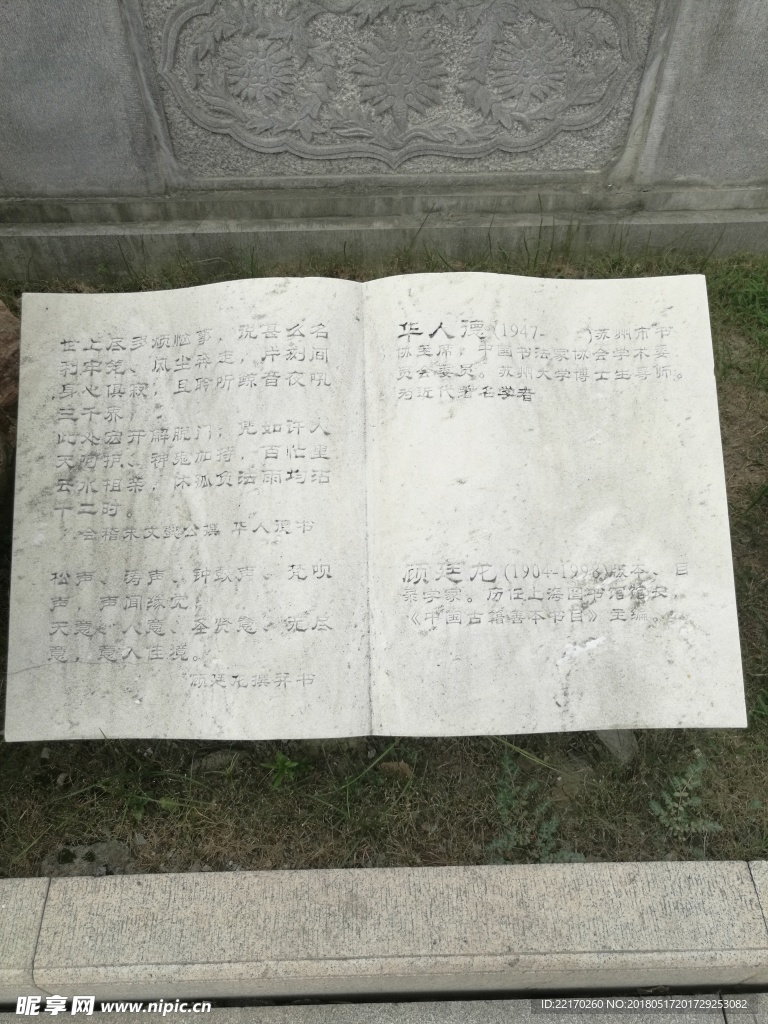 世上底多烦恼事，说甚么名
利牢笼、风尘奔走，片刻间
身心俱寂，且聆听鲸音夜吼
三千界；
此处宏开解脱门，凭如许人
天呵护、神施加持，百忙里
云水相亲，休孤负法雨均沾
十二时。
会稽朱文 公撰 华人德书
松声、涛声、钟鼓声、梵呗
声，声闻缘觉；
天意、人意、圣贤意、无尽
意，意入生境。
顾廷龙撰并书
华人德(1947- )苏州市书
协主席，中国书法家协会学术委
员会委员。苏州大学博士生导师。
为近代著名学者
顾廷龙(1904-1998)版本、目
录学家。历任上海图书馆馆长，
《中国古籍善本书目》主编。
昵享网 www.nipic.cn
ID:22170260 NO:20180517201729253082